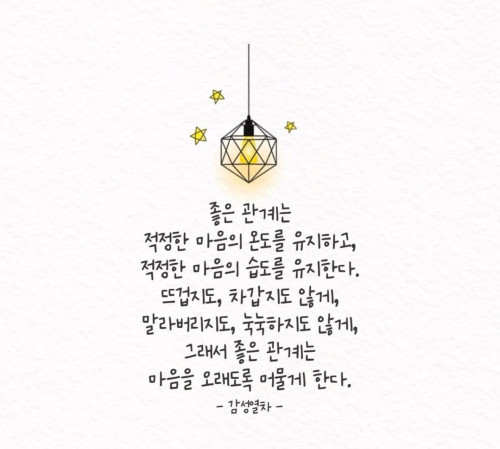 좋은 관계는
적정한 마음의 온도를 유지하고,
적정한 마음의 습도를 유지한다.
뜨겁지도, 차갑지도 않게,
말라버리지도, 눅눅하지도 않게,
그래서 좋은 관계는
마음을 오래도록 머물게 한다.
- 감성열차 -